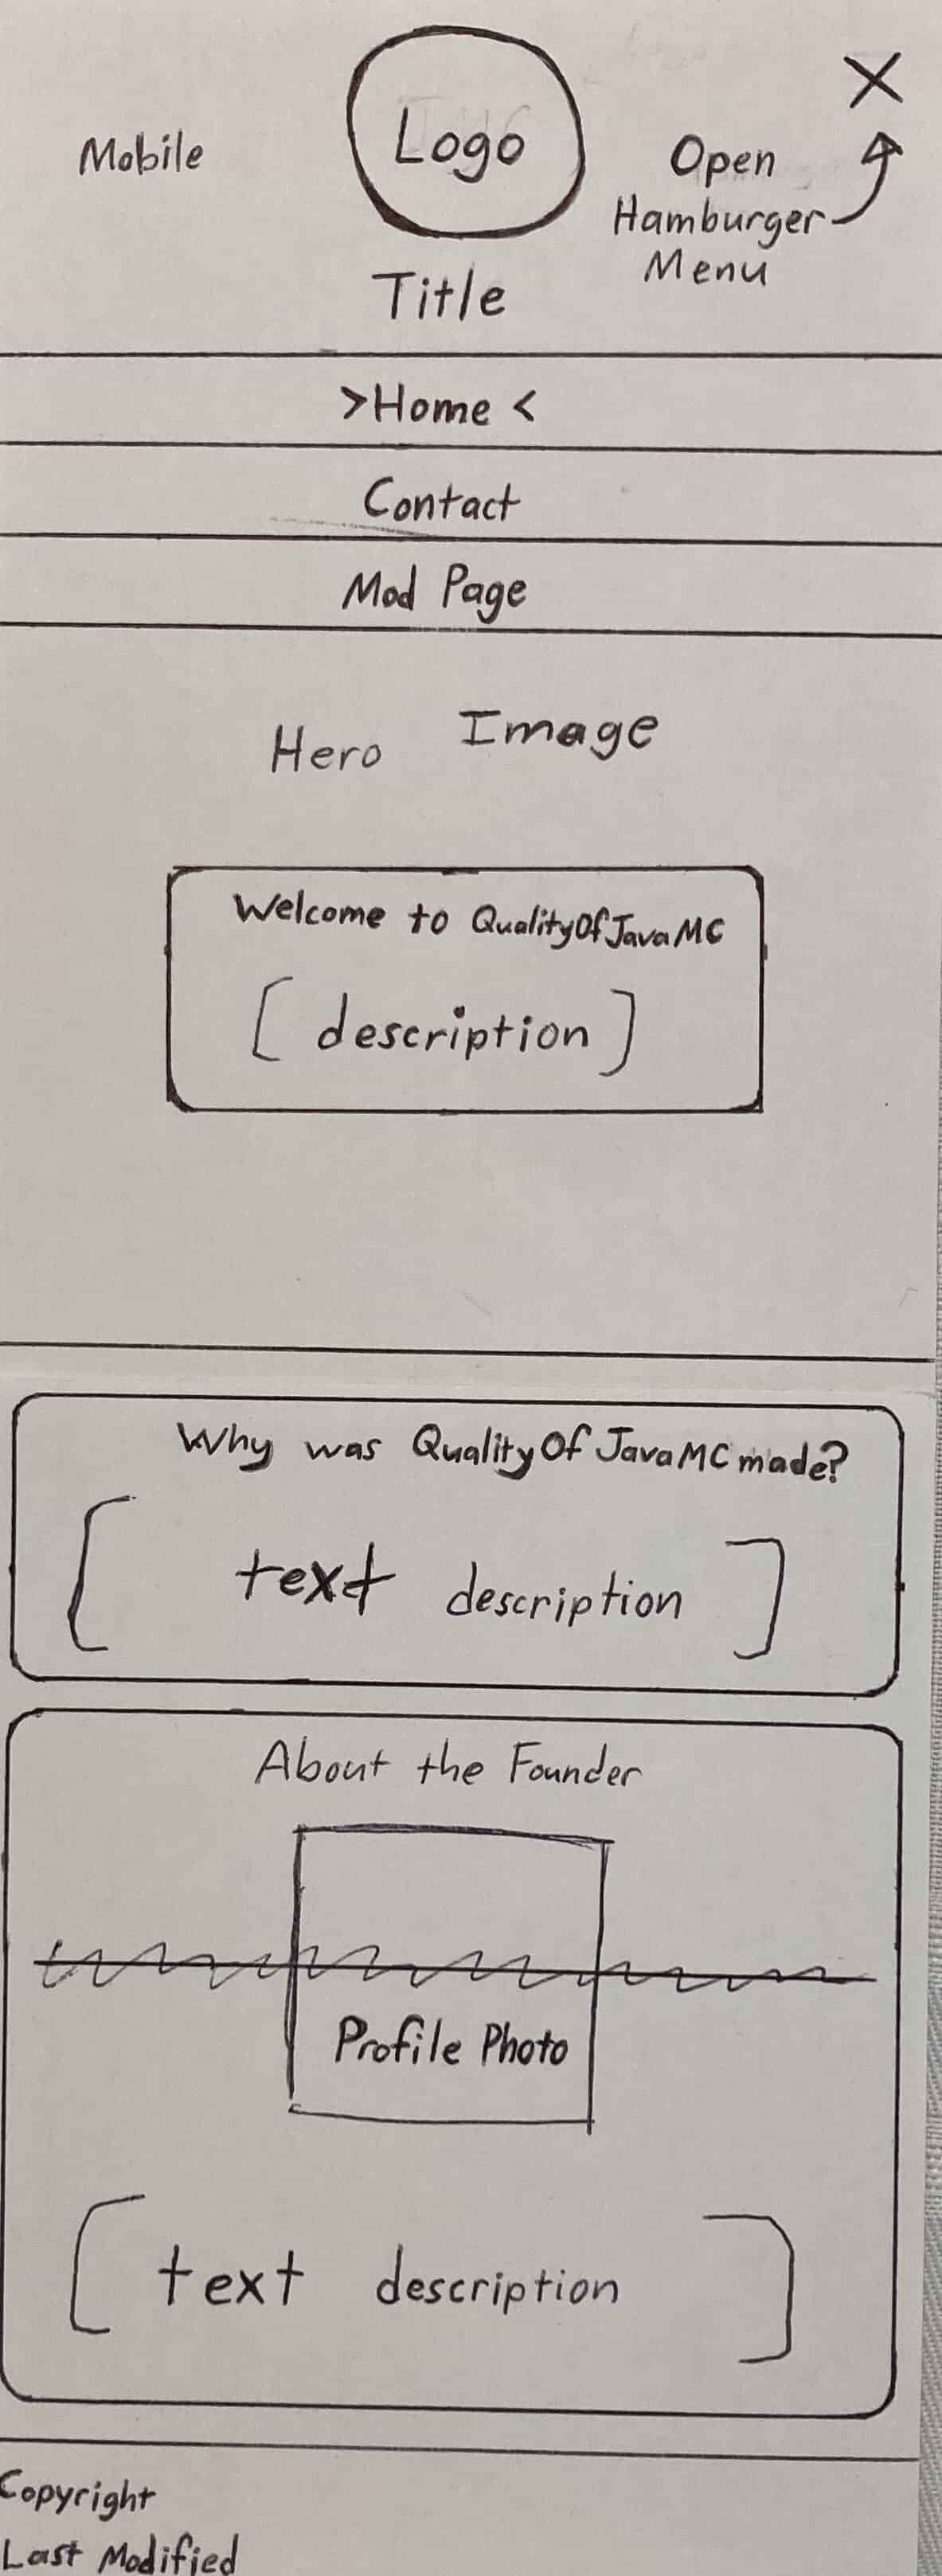 Mobile
Logo
X
Open
Hamburger
Menu
Title
>Home <
Contact
Mod Page
Hero Image
Welcome to QualityOfJavaMC
[ description ]
Why was QualityOfJavaMC made?
[ text description ]
About the Founder
Profile Photo
[ text description ]
Copyright
Last Modified